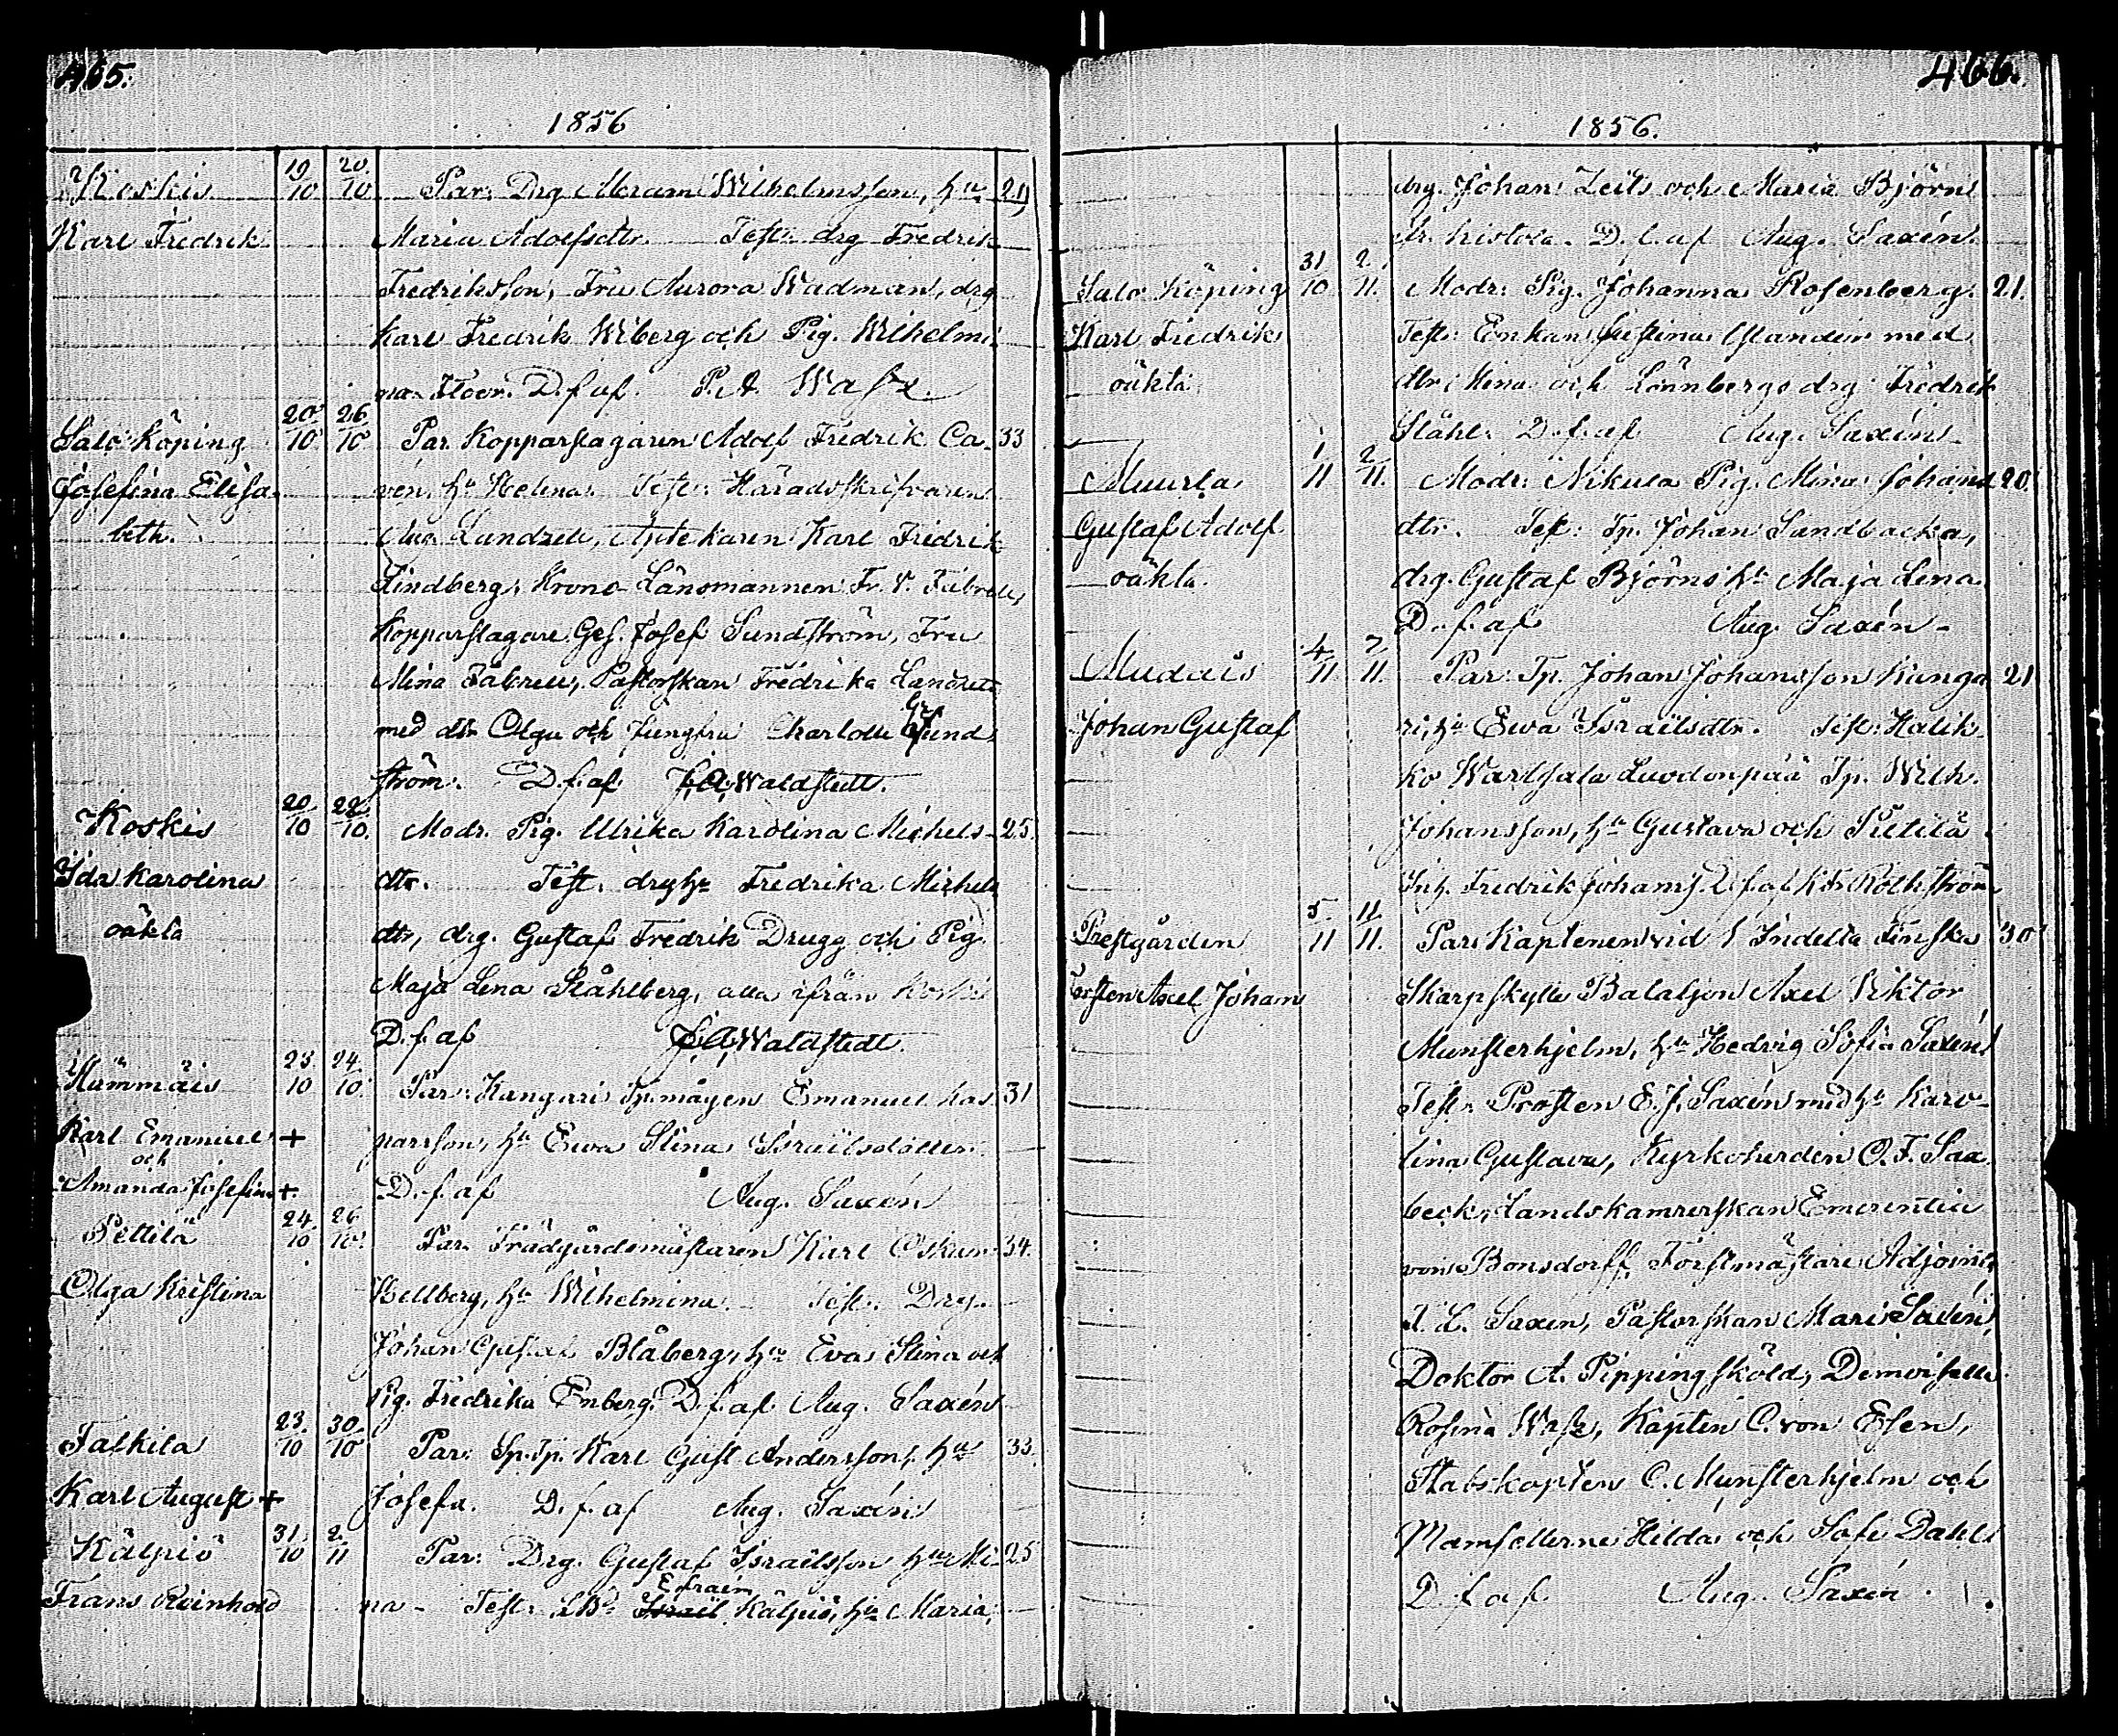 465.
1856
Koskis 19/10 20/10 Par: Drg Abram Wilhelmsson, hu 29
Karl Fredrik Maria Adolfsdtr. Test: drg Fredrik
Fredriksson, Fru Aurora Wadman, drg
Karl Fredrik Wiberg och Pig. Wilhelmi
na D. f. af. Wasz.
Salo Köping 20/10 26/10 Par. Kopparslagaren Adolf Fredrik Ca- 33
Josefina Elisa ven, hu Helena. Test: Häradsskrifvaren
beth. Aug. Landzett, Apotekaren Karl Fredrik
Lindberg, Krono-Länsmannen Fr. V. Fabrell,
Kopparslagare Ges. Josef Sundström, Fru
Mina Fabrell, Pastorskan Fredrika Landzett
med dtr Olga och Jungfru Charlotte Sund
ström. D. f. af Waldstedt.
Koskis 20/10 22/10 Modr. Pig. Ulrika Karolina Michels- 25.
Ida Karolina dtr. Test. drg hu Fredrika Michels
oäkta dtr, drg. Gustaf Fredrik Drugg och Pig.
Maja Lena Ståhlberg, alla ifrån Koskis
D. f. af Waldstedt.
23/10 24/10 Par: Kangari Tp. mågen Emanuel Kas 31
Karl Emanuel + parsson, hu Ewa Stina Israëlsdotter.
och
Amanda Josefina + D. f. af Aug. Saxén
Pettilä 24/10 26/10 Par. Trädgårdsmästaren Karl Oskar 34.
Olga Kristina Hellberg, hu Wilhelmina. Test. Drg.
Johan Gustaf Blåberg, hu Eva Stina och
Pig. Fredrika Enberg. D. f. af Aug. Saxén
23/10 30/10 Par: Sp. Tp. Karl Gust Andersson, hu 33.
Karl August + Josefa. D. f. af Aug. Saxén
Kälpiö 31/10 2/11 Par: Drg. Gustaf Israëlsson hu Mi- 25
Efraim
Frans Reinhold na - Test: Israël Kälpiö, hu Maria,
466.
1856.
drg. Johan Zeits och Maria Björn
fr. D. f. af Aug. Saxén.
Salo Köping 31/10 2/11. Modr: Pig. Johanna Rosenberg. 21.
Karl Fredrik Test: Enkan Justina med
oäkta dtr Mina och Lönnbergs drg. Fredrik
Ståhl. D. f. af Aug. Saxén
Muurla 1/11 2/11. Modr: Nikula Pig. Mina Johans 20.
Gustaf Adolf dtr. Test: Tp. Johan Sundbacka,
oäkta. drg. Gustaf Björns hu Maja Lena
D. f. af Aug. Saxén -
4/11 7/11. Par: Tp. Johan Johansson Kanga 21
Johan Gustaf ri, hu Ewa Israëlsdtr. Test: Halik
ko Wartsala Tp. Wilh.
Johansson, hu Gustava och Pietilä
Inh. Fredrik Johanss. D. f. af Rothström
Prestgården 5/11 11/11. Par: Kaptenen vid 1 Indelta Finska 30
Torsten Axel Johan Skarpskytte Bataljon Axel Viktor
Munsterhjelm, hu Hedvig Sofia Saxén
Test: Prosten E. J. Saxén med hu Karo-
lina Gustava, Kyrkoherden O. F. Sax
beck, Landskamrerskan Emerentia
von Bonsdorff, Forstmästare Adjoint
A. L. Saxén, Pastorskan Mari Saxén,
Doktor A. Pippingsköld, Demoiselle
Rosina Wasz, Kapten C. von Essen,
Stabskapten C. Munsterhjelm och
Mamsellerne Hilda och Sofi Dahl
D. f. af. Aug. Saxén.